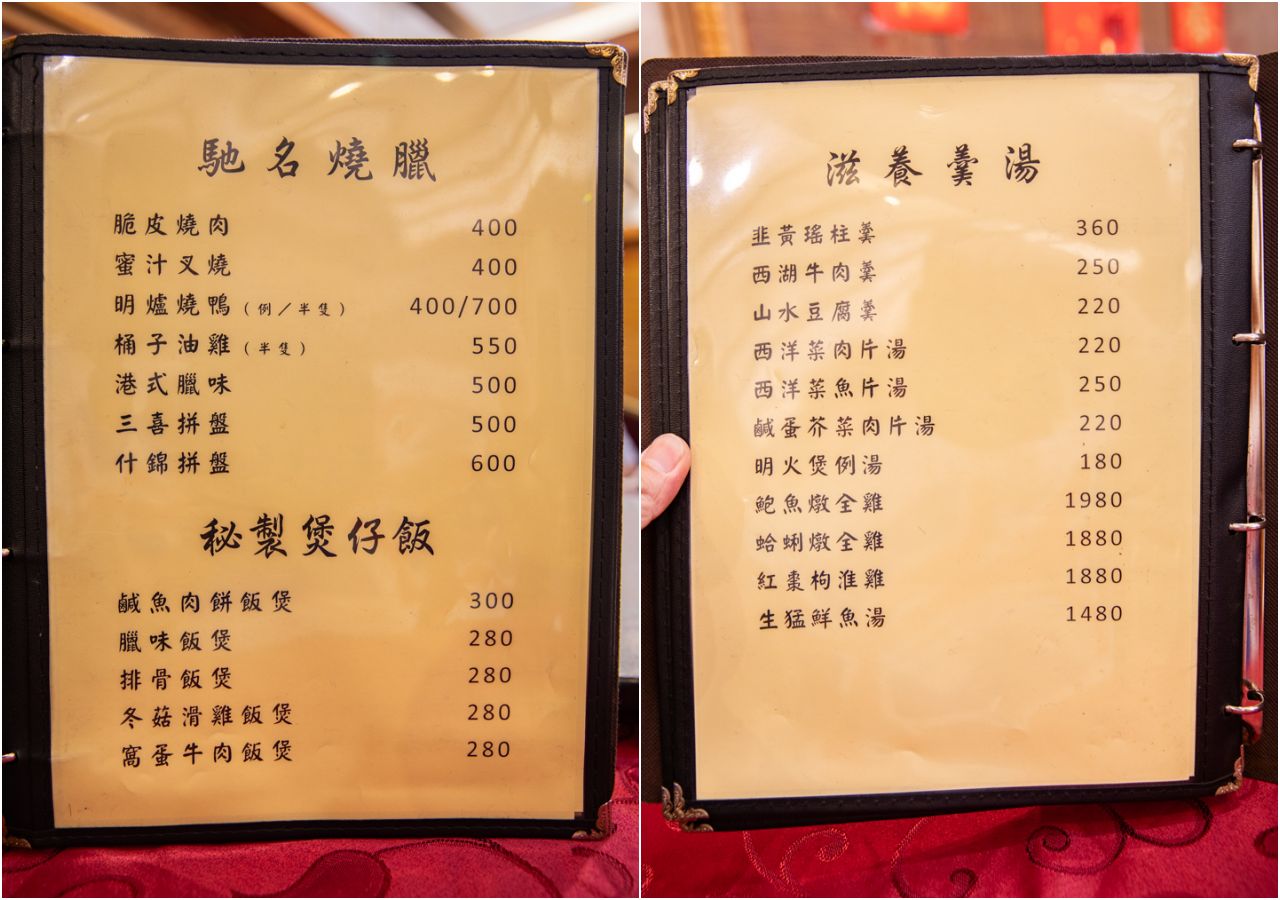 馳名燒臘
脆皮燒肉 400
蜜汁叉燒 400
明爐燒鴨(例/半隻) 400/700
桶子油雞(半隻) 550
港式臘味 500
三喜拼盤 500
什錦拼盤 600
秘製煲仔飯
鹹魚肉餅飯煲 300
臘味飯煲 280
排骨飯煲 280
冬菇滑雞飯煲 280
窩蛋牛肉飯煲 280
滋養羹湯
韭黃瑤柱羹 360
西湖牛肉羹 250
山水豆腐羹 220
西洋菜肉片湯 220
西洋菜魚片湯 250
鹹蛋芥菜肉片湯 220
明火煲例湯 180
鮑魚燉全雞 1980
蛤蜊燉全雞 1880
紅棗枸淮雞 1880
生猛鮮魚湯 1480